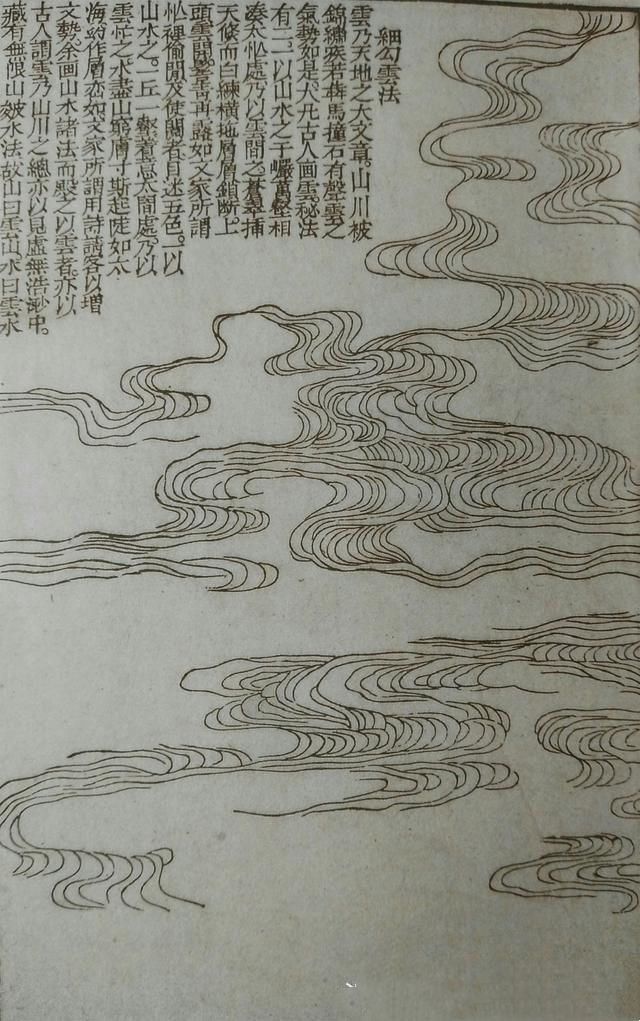 細勾雲法
雲乃天地之大文章。山川被
錦繡疾若奔馬撞石有聲雲之
氣勢如是。大凡古人画雲。秘法
有二。一以山水之千巖萬壑相
湊太忙處乃以雲間之蒼翠插
天倏而白練橫拖層層鎖斷上
頭雲開再露如文家所謂
忙裡偷閒及使閱者目迷五色。一以
山水之一丘一壑着意太閒處乃以
雲忙之水盡山窮層寸斯起陡如大
海作層亦如文家所謂用詩請客以增
文勢。余画山水諸法而殿之以雲者。亦以
古人謂雲乃山川之總亦以見虛無浩渺中。
藏有無限山皴水法故山曰雲山。水曰雲水